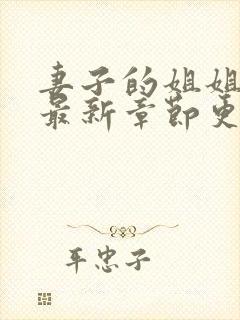 妻子的姐姐
最新章节更
平忠子